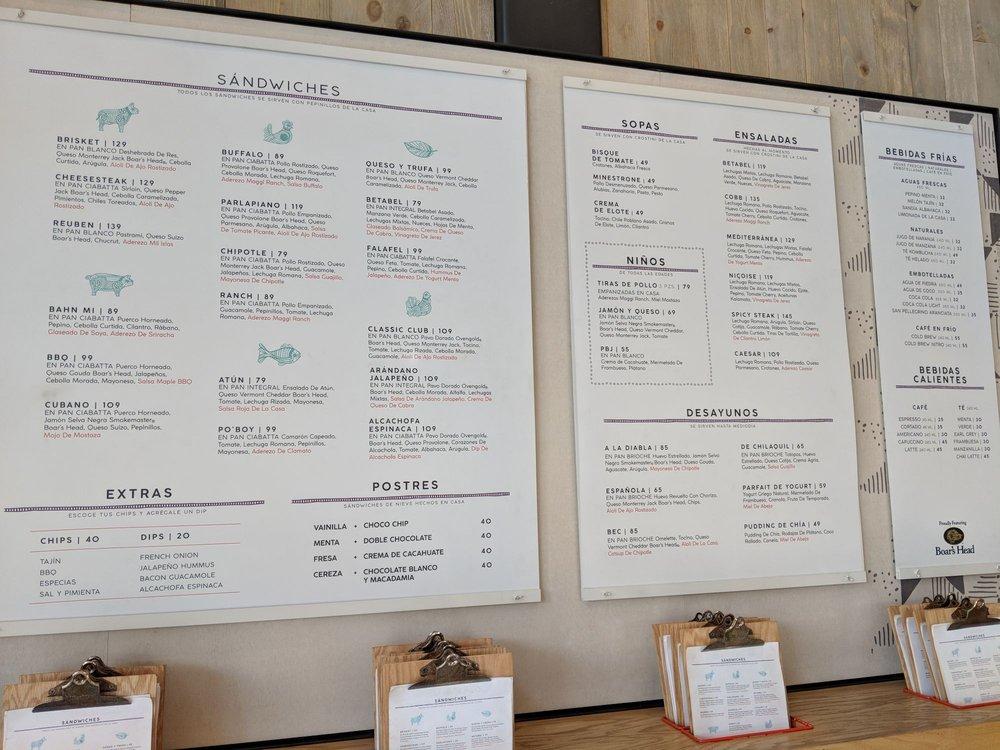 SÁNDWICHES
TODOS LOS SÁNDWICHES SE SIRVEN CON PEPINILLOS DE LA CASA
BRISKET | 129
EN PAN BLANCO Deshebrada De Res,
Queso Monterrey Jack Boar's Head, Cebolla
Curtida, Arúgula, Aioli De Ajo Rostizado
CHEESESTEAK | 129
EN PAN CIABATTA Sirloin, Queso Pepper
Jack Boar's Head, Cebolla Caramelizada,
Pimientos, Chiles Toreados, Aioli De Ajo
Rostizado
REUBEN | 139
EN PAN BLANCO Pastrami, Queso Suizo
Boar's Head, Chucrut, Aderezo Mil Islas
BAHN MI | 89
EN PAN CIABATTA Puerco Horneado,
Pepino, Cebolla Curtida, Cilantro, Rábano,
Glaseado De Soya, Aderezo De Sriracha
BBQ | 99
EN PAN CIABATTA Puerco Horneado,
Queso Gouda Boar's Head, Jalapeños,
Cebolla Morada, Mayonesa, Salsa Maple BBQ
CUBANO | 109
EN PAN CIABATTA Puerco Horneado,
Jamón Selva Negra Smokemaster
Boar's Head, Queso Suizo, Pepinillos,
Mojo De Mostaza
BUFFALO | 89
EN PAN CIABATTA Pollo Rostizado, Queso
Provolone Boar's Head, Queso Roquefort,
Cebolla Morada, Lechuga Romana,
Aderezo Maggi Ranch, Salsa Buffalo
PARLAPIANO | 119
EN PAN CIABATTA Pollo Empanizado,
Queso Provolone Boar's Head, Queso
Parmesano, Arúgula, Albahaca, Salsa
De Tomate Picante, Aioli De Ajo Rostizado
CHIPOTLE | 79
EN PAN CIABATTA Pollo Rostizado, Queso
Monterrey Jack Boar's Head, Guacamole,
Jalapeños, Lechuga Romana, Salsa Guajillo,
Mayonesa De Chipotle
RANCH | 89
EN PAN CIABATTA Pollo Empanizado,
Guacamole, Pepinillos, Tomate, Lechuga
Romana, Aderezo Maggi Ranch
ATÚN | 79
EN PAN INTEGRAL Ensalada De Atún,
Queso Vermont Cheddar Boar's Head,
Tomate, Lechuga Rizada, Mayonesa,
Salsa Roja De La Casa
PO'BOY | 99
EN PAN CIABATTA Camarón Capeado,
Tomate, Lechuga Romana, Pepinillos,
Mayonesa, Aderezo De Clamato
QUESO Y TRUFA | 99
EN PAN BLANCO Queso Vermont Cheddar
Boar's Head, Queso Monterrey Jack, Cebolla
Caramelizada, Aioli De Trufa
BETABEL | 79
EN PAN INTEGRAL Betabel Asado,
Manzana Verde, Cebolla Caramelizada,
Lechugas Mixtas, Nueces, Hojas De Menta,
Glaseado Balsámico, Crema De Queso
De Cabra, Vinagreta De Jerez
FALAFEL | 99
EN PAN CIABATTA Falafel Crocante,
Queso Feta, Tomate, Lechuga Romana,
Pepino, Cebolla Curtida, Hummus De
Jalapeño, Aderezo De Yogurt Menta
CLASSIC CLUB | 109
EN PAN BLANCO Pavo Dorado Ovengold,
Boar's Head, Queso Monterrey Jack, Tocino,
Tomate, Lechuga Rizada, Cebolla Morada,
Guacamole, Aioli De Ajo Rostizado
ARÁNDANO
JALAPEÑO | 109
EN PAN INTEGRAL Pavo Dorado Ovengold,
Boar's Head, Cebolla Morada, Alfalfa, Lechugas
Mixtas, Salsa De Arándano Jalapeño, Crema De
Queso De Cabra
ALCACHOFA
ESPINACA | 109
EN PAN CIABATTA Pavo Dorado Ovengold,
Boar's Head, Queso Provolone, Corazones De
Alcachofa, Tomate, Albahaca, Arugula, Dip De
Alcachofa Espinaca
EXTRAS
ESCOGE TUS CHIPS Y AGRÉGALE UN DIP
CHIPS | 40
TAJÍN
BBQ
ESPECIAS
SAL Y PIMIENTA
DIPS | 20
FRENCH ONION
JALAPEÑO HUMMUS
BACON GUACAMOLE
ALCACHOFA ESPINACA
POSTRES
SÁNDWICHES DE NIEVE HECHOS EN CASA
VAINILLA + CHOCO CHIP 40
MENTA + DOBLE CHOCOLATE 40
FRESA + CREMA DE CACAHUATE 40
CEREZA + CHOCOLATE BLANCO
Y MACADAMIA 40
SOPAS
SE SIRVEN CON CROSTINI DE LA CASA
BISQUE
DE TOMATE | 49
Crotones, Albahaca Fresca
MINESTRONE | 49
Pollo Desmenuzado, Queso Parmesano,
Alubias, Zanahoria, Pasta, Pesto
CREMA
DE ELOTE | 49
Tocino, Chile Poblano Asado, Granos
De Elote, Limón, Cilantro
NIÑOS
DE TODAS LAS EDADES
TIRAS DE POLLO 3 PZS. | 79
EMPANIZADAS EN CASA
Aderezos Maggi Ranch, Miel Mostaza
JAMÓN Y QUESO | 69
EN PAN BLANCO
Jamón Selva Negra Smokemaster,
Boar's Head, Queso Vermont Cheddar,
Queso Monterrey Jack, Tomate
PBJ | 55
EN PAN BLANCO
Crema de Cacahuate, Mermelada De
Frambuesa, Plátano
ENSALADAS
HECHAS AL MOMENTO
SE SIRVEN CON CROSTINI DE LA CASA
BETABEL | 119
Lechugas Mixtas, Lechuga Romana, Betabel
Asado, Queso De Cabra, Aguacate, Manzana
Verde, Nueces, Vinagreta De Jerez
COBB | 135
Lechuga Romana, Pollo Rostizado, Tocino,
Huevo Cocido, Queso Roquefort, Aguacate,
Tomate Cherry, Cebolla Curtida, Crotones,
Aderezo Maggi Ranch
MEDITERRÁNEA | 129
Lechuga Romana, Lechugas Mixtas, Falafel
Crocante, Queso Feta, Pepino, Cebolla
Curtida, Tomate Cherry, Hummus, Aderezo
De Yogurt Menta
NIÇOISE | 119
Lechuga Romana, Lechugas Mixtas,
Ensalada De Atún, Huevo Cocido, Ejote,
Pepino, Tomate Cherry, Aceitunas
Kalamata, Vinagreta De Jerez
SPICY STEAK | 145
Lechuga Romana, Arúgula, Sirloin, Queso
Cotija, Guacamole, Rábano, Tomate Cherry,
Cebolla Curtida, Tiras De Tortilla, Vinagreta
De Cilantro Limón
CAESAR | 109
Lechuga Romana, Pollo Rostizado, Queso
Parmesano, Crotones, Aderezo Caesar
DESAYUNOS
SE SIRVEN HASTA MEDIODÍA
A LA DIABLA | 85
EN PAN BRIOCHE Huevo Estrellado, Jamón Selva
Negra Smokemaster Boar's Head, Queso Gouda,
Aguacate, Arúgula, Mayonesa De Chipotle
ESPAÑOLA | 65
EN PAN BRIOCHE Huevo Revuelto Con Chorizo,
Queso Monterrey Jack Boar's Head, Chips,
Aioli De Ajo Rostizado
BEC | 85
EN PAN BRIOCHE Omelette, Tocino, Queso
Vermont Cheddar Boar's Head, Aioli De La Casa,
Catsup De Chipotle
DE CHILAQUIL | 65
EN PAN BRIOCHE Totopos, Huevo
Estrellado, Queso Cotija, Crema Agria,
Guacamole, Salsa Guajillo
PARFAIT DE YOGURT | 59
Yogurt Griego Natural, Mermelada De
Frambuesa, Granola, Fruta De Temporada,
Miel De Abeja
PUDDING DE CHÍA | 49
Pudding De Chía, Rodajas De Plátano, Coco
Rallado, Canela, Miel De Abeja
BEBIDAS FRÍAS
AGUAS FRESCAS | NATURALES |
EMBOTELLADAS | CAFÉ EN FRÍO
AGUAS FRESCAS
PEPINO MENTA | 32
MELÓN TAJÍN | 32
SANDÍA ALBAHACA | 32
LIMONADA DE LA CASA | 32
NATURALES
JUGO DE NARANJA | 32
JUGO DE MANZANA | 32
TÉ KOMBUCHA | 49
TÉ HELADO | 32
EMBOTELLADAS
AGUA DE PIEDRA | 49
AGUA DE COCO | 35
COCA COLA | 32
COCA COLA LIGHT | 32
SAN PELLEGRINO ARANCIATA | 35
CAFÉ EN FRÍO
COLD BREW | 55
COLD BREW NITRO | 55
BEBIDAS
CALIENTES
CAFÉ
ESPRESSO | 35
CORTADO | 35
AMERICANO | 30
CAPUCCINO | 45
LATTE | 45
TÉ
MENTA | 30
VERDE | 30
EARL GREY | 30
FRAMBUESA | 30
MANZANILLA | 30
CHAI LATTE | 45
Proudly Featuring
Boar's Head
SÁNDWICHES
SÁNDWICHES
SÁNDWICHES
SÁNDWICHES